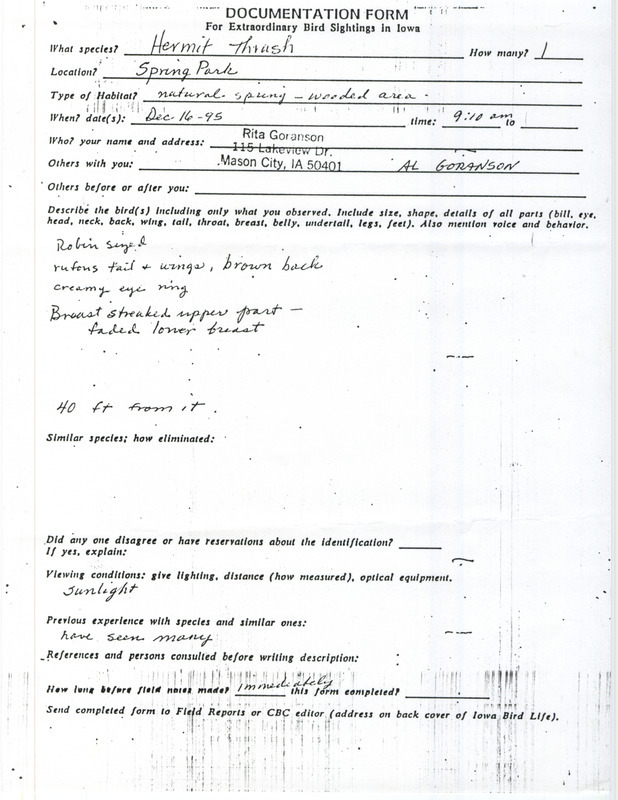 DOCUMENTATION FORM
For Extraordinary Bird Sightings in Iowa
What species? Hermit Thrush How many? 1
Location? Spring Park
Type of Habitat? natural spring - wooded area.
When? date(s): Dec 16-95 time: 9:10 am to
Who? your name and address: Rita Goranson
115 Lakeview Dr.
Others with you: Mason City, IA 50401 AL GORANSON
Others before or after you:
Describe the bird(s) including only what you observed. Include size, shape, details of all parts (bill, eye,
head, neck, back, wing, tail, throat, breast, belly, undertail, legs, feet). Also mention voice and behavior.
Robin sized
rufous tail + wings, brown back
creamy eye ring
Breast streaked upper part -
faded lower breast
40 ft from it.
Similar species; how eliminated:
Did any one disagree or have reservations about the identification?
If yes, explain:
Viewing conditions: give lighting, distance (how measured), optical equipment.
sunlight
Previous experience with species and similar ones:
have seen many
References and persons consulted before writing description:
How long before field notes made? immediately this form completed?
Send completed form to Field Reports or CBC editor (address on back cover of Iowa Bird Life).